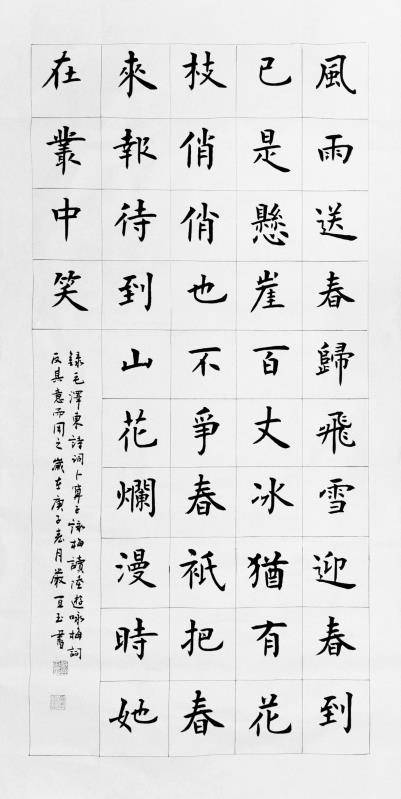 風雨送春歸飛雪迎春到
已是懸崖百丈冰猶有花
枝俏俏也不爭春衹把春
來報待到山花爛漫時她
在叢中笑
錄毛澤東詩詞卜算子詠梅讀陸遊咏梅詞
反其意而用之歲在庚子春月嚴玉書